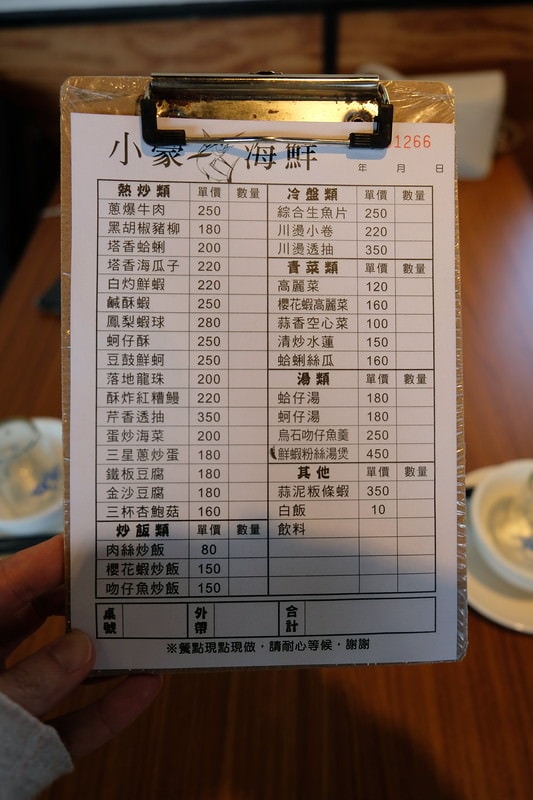 小豪海鮮
1266
年 月 日
熱炒類 單價 數量
蔥爆牛肉 250
黑胡椒豬柳 180
塔香蛤蜊 200
塔香海瓜子 220
白灼鮮蝦 220
鹹酥蝦 250
鳳梨蝦球 280
蚵仔酥 250
豆鼓鮮蚵 250
落地龍珠 200
酥炸紅糟鰻 220
芹香透抽 350
蛋炒海菜 200
三星蔥炒蛋 180
鐵板豆腐 180
金沙豆腐 180
三杯杏鮑菇 160
炒飯類 單價 數量
肉絲炒飯 80
櫻花蝦炒飯 150
吻仔魚炒飯 150
冷盤類 單價 數量
綜合生魚片 250
川燙小卷 220
川燙透抽 350
青菜類 單價 數量
高麗菜 120
櫻花蝦高麗菜 160
蒜香空心菜 100
清炒水蓮 150
蛤蜊絲瓜 160
湯類 單價 數量
蛤仔湯 180
蚵仔湯 180
烏石吻仔魚羹 250
鮮蝦粉絲湯煲 450
其他 單價 數量
蒜泥粄條蝦 350
白飯 10
飲料
桌號 外帶 合計
※餐點現點現做，請耐心等候，謝謝